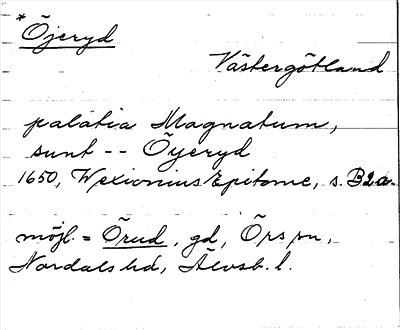 * Öjeryd
Västergötland
palátia Magnatum,
sunt -- Öyeryd
1650, Wexionius Epitome, s. B2a.
möjl. = Örud, gd, Örs sn,
Nordals hd, Älvsb. l.